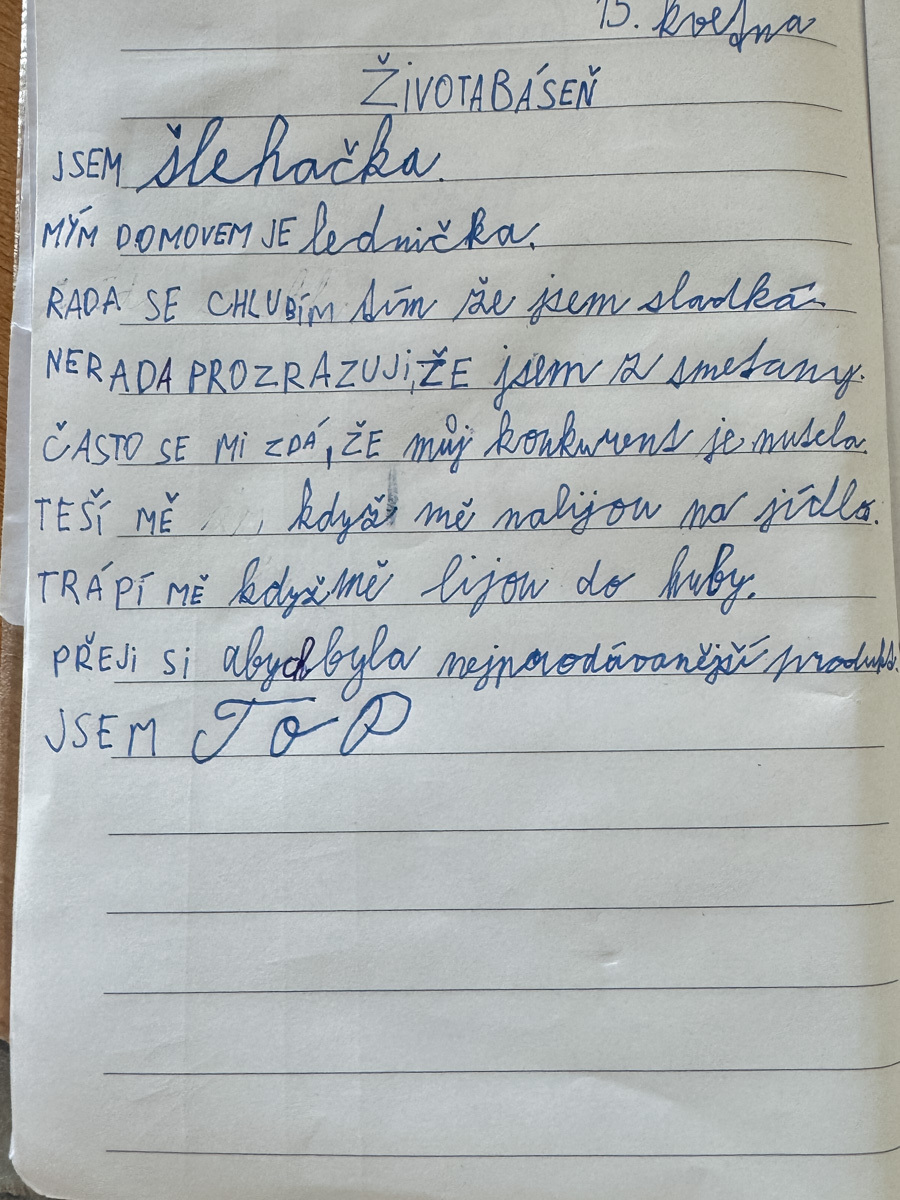 15. května
ŽIVOTABÁSEŇ
JSEM šlehačka.
MÝM DOMOVEM JE lednička.
RADA SE CHLUBÍM tím že jsem sladká.
NERADA PROZRAZUJI, ŽE jsem z smetany.
ČASTO SE MI ZDÁ, ŽE můj konkurent je nutela.
TEŠÍ MĚ, když mě nalijou na jídlo.
TRÁPÍ MĚ když mě lijou do huby.
PŘEJI SI abych byla nejprodávanější produkt.
JSEM TOP